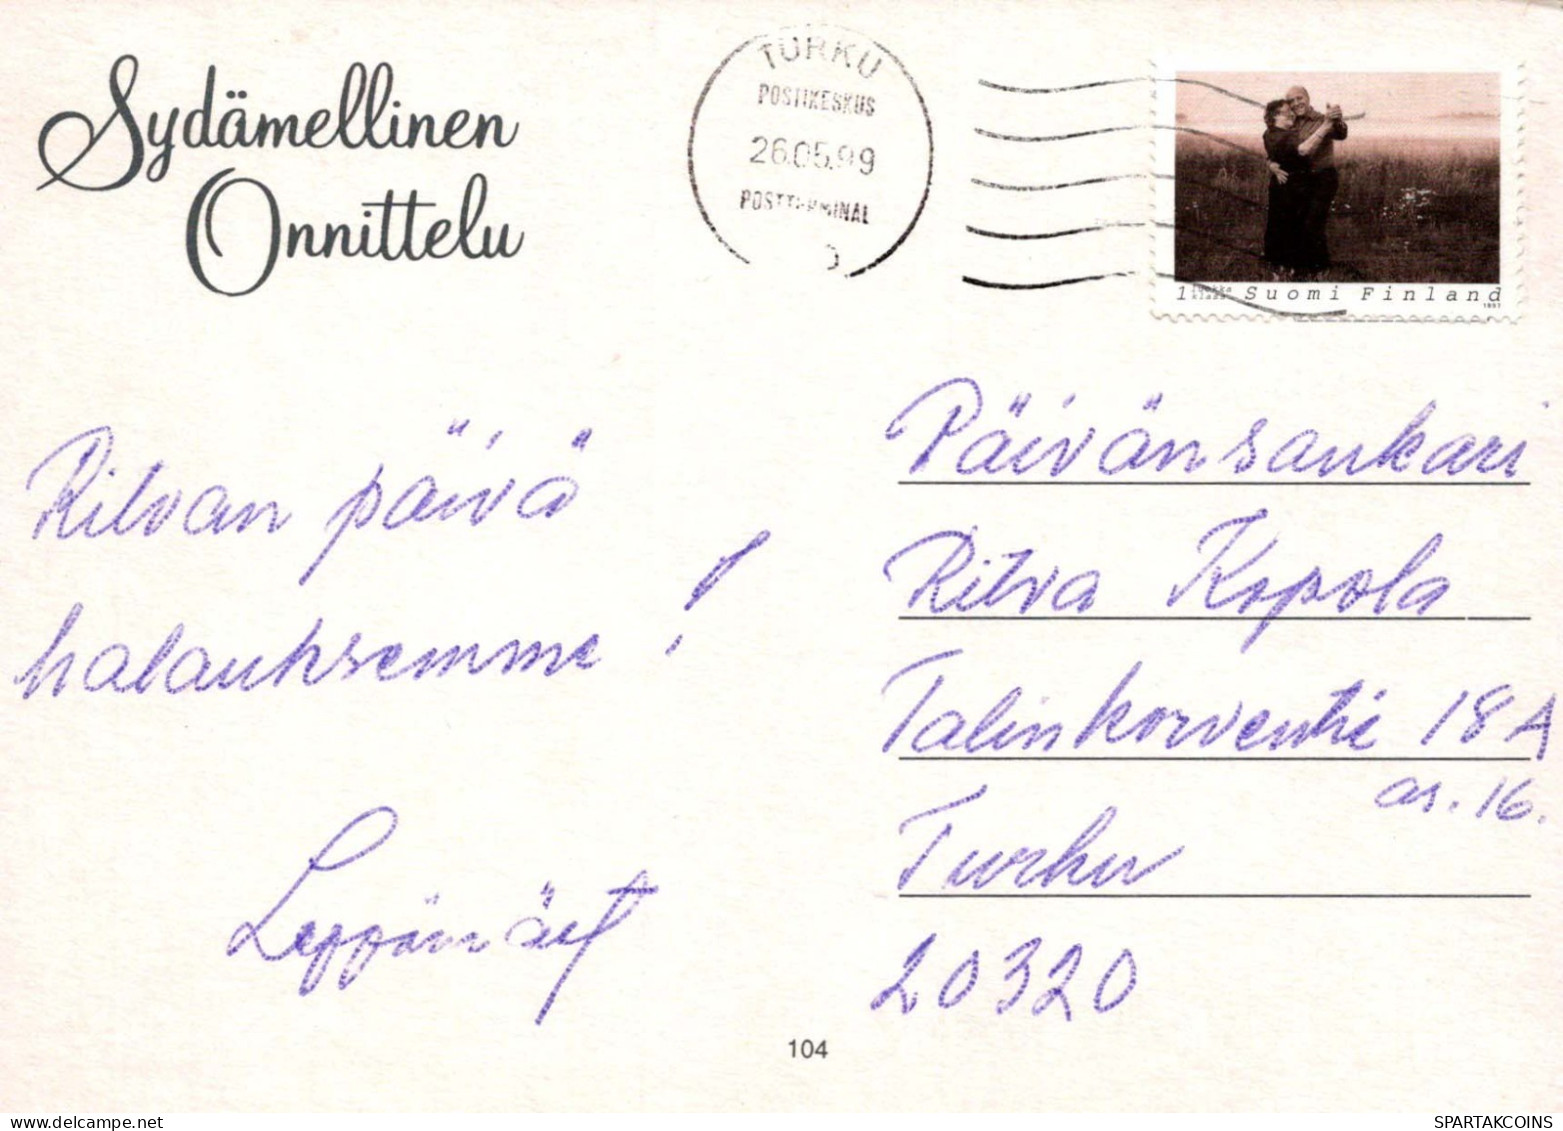 Sydämellinen
Onnittelu
TURKU
POSTIKESKUS
26.05.99
POSTTERMINAL
1
Suomi Finland
1997
Ritvan päivä
halauksemme !
Leppämäet
Päivänsankari
Ritva Kopola
Talinkorventie 18 A
as. 16.
Turku
20320
104
delcampe.net
SPARTAKCOINS